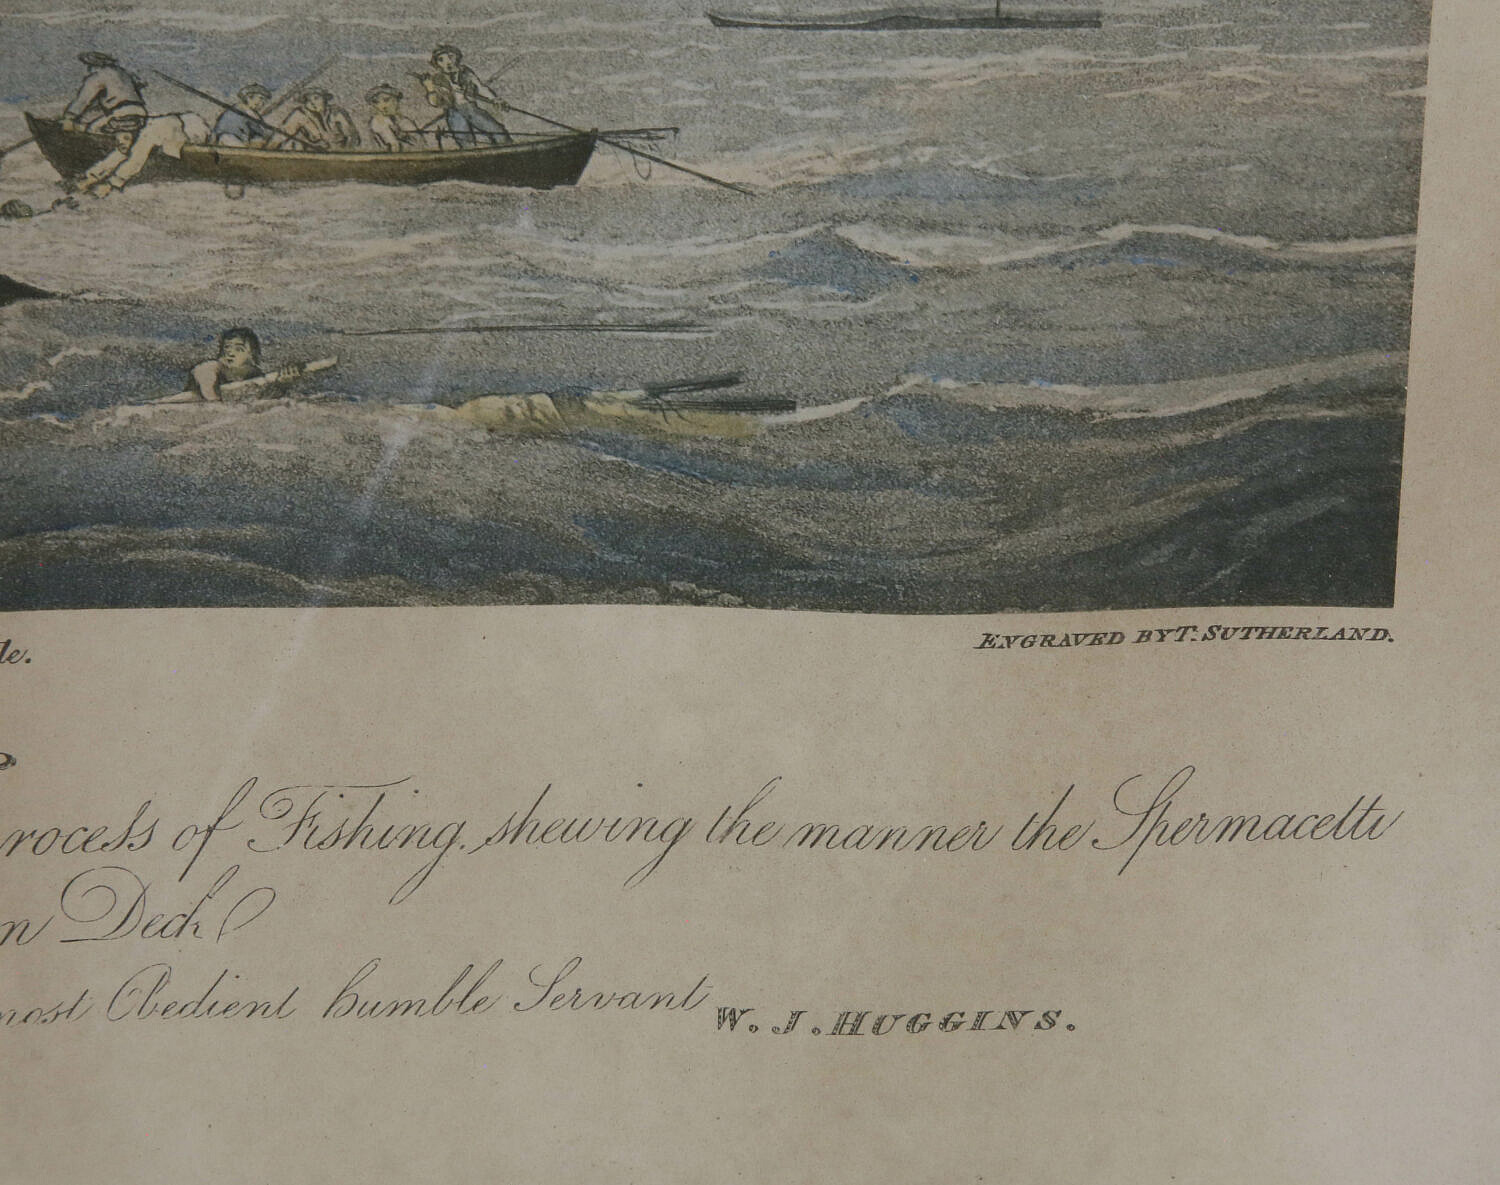 le.
ENGRAVED BY T. SUTHERLAND.
rocess of Fishing, shewing the manner the Spermacetti
n Deck
most Obedient humble Servant W. J. HUGGINS.